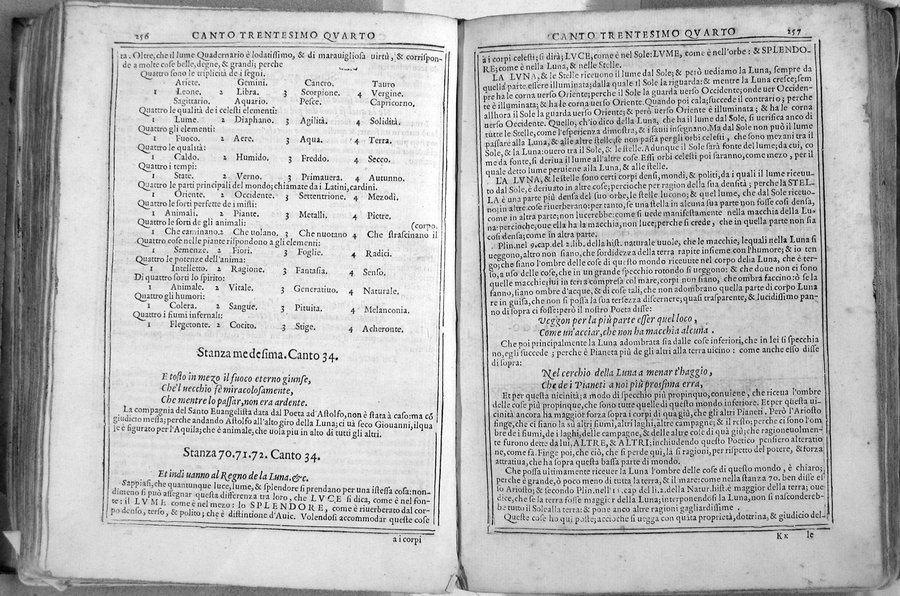 256 CANTO TRENTESIMO QVARTO
ra. Oltre, che il lume Quadernario è lodatissimo, & di marauigliosa virtù, & corrispon-
de a molte cose belle, degne, & grandi; perche
Quattro sono le triplicità de i segni.
Ariete. Gemini. Cancro. Tauro
1 Leone. 2 Libra. 3 Scorpione. 4 Vergine.
Sagittario. Aquario. Pesce. Capricorno,
Quattro le qualità de i celesti elementi:
1 Lume. 2 Diaphano. 3 Agilità. 4 Solidità.
Quattro gli elementi:
1 Fuoco. 2 Aere. 3 Aqua. 4 Terra.
Quattro le qualità:
1 Caldo. 2 Humido. 3 Freddo. 4 Secco.
Quattro i tempi:
1 State. 2 Verno. 3 Primauera. 4 Autunno.
Quattro le parti principali del mondo; chiamate da i Latini, cardini.
1 Oriente. 2 Occidente. 3 Settentrione. 4 Mezodì.
Quattro le sorti perfette de i misti:
1 Animali. 2 Piante. 3 Metalli. 4 Pietre.
Quattro le sorti de gli animali: (corpo.
1 Che caminano. 2 Che uolano. 3 Che nuotano 4 Che strascinano il
Quattro cose nelle piante rispondono a gli elementi:
1 Semenze. 2 Fiori. 3 Foglie. 4 Radici.
Quattro le potenze dell'anima:
1 Intelletto. 2 Ragione. 3 Fantasia. 4 Senso.
Di quattro sorti lo spirito:
1 Animale. 2 Vitale. 3 Generatiuo. 4 Naturale.
Quattro gli humori:
1 Colera. 2 Sangue. 3 Pituita. 4 Melanconia.
Quattro i fiumi infernali:
1 Flegetonte. 2 Cocito. 3 Stige. 4 Acheronte.
Stanza medesima. Canto 34.
E tosto in mezo il fuoco eterno giunse,
Che'l uecchio fè miracolosamente,
Che mentre lo passar, non era ardente.
La compagnia del Santo Euangelista data dal Poeta ad Astolfo, non è stata à caso: ma cō
giudicio messa; perche andando Astolfo all'alto giro della Luna; ci uà seco Giouanni, il qua
le è figurato per l'Aquila; che è animale, che uola piu in alto di tutti gli altri.
Stanza 70. 71. 72. Canto 34.
Et indi uanno al Regno de la Luna. &c.
Sappiasi, che quantunque luce, lume, & splendore si prendano per una istessa cosa: non-
dimeno si può assegnar questa differenza tra loro, che LVCE si dica, come è nel fon-
te: il LVME come è nel mezo: lo SPLENDORE, come è riuerberato dal cor-
po denso, terso, & polito; che è distintione d'Auic. Volendosi accommodar queste cose
a i corpi
CANTO TRENTESIMO QVARTO 257
a i corpi celesti; si dirà; LVCE, come è nel Sole: LVME, come è nell'orbe: & SPLENDO-
RE; come è nella Luna, & nelle Stelle.
LA LVNA, & le Stelle riceuono il lume dal Sole; & però uediamo la Luna, sempre da
quella parte essere illuminata; dalla quale il Sole la riguarda: & mentre la Luna cresce; sem
pre ha le corna uerso Oriente; perche il Sole la guarda uerso Occidente; onde uer Occiden-
te è illuminata; & ha le corna uerso Oriente. Quando poi cala; succede il contrario; perche
allhora il Sole la guarda uerso Oriente; & però uerso Oriente è illuminata; & ha le corna
uerso Occidente. Quello, ch'io dico della Luna, che ha il lume dal Sole, si uerifica anco di
tutte le Stelle, come l'esperienza dimostra, & i sauii insegnano. Ma dal Sole non può il lume
passare alla Luna, & alle altre stelle, se non passa per gli orbi celesti, che sono mezani tra il
Sole, & la Luna: ouero tra il Sole, & le stelle. Adunque il Sole sarà fonte del lume; da cui, co
me da fonte, si deriua il lume all'altre cose. Essi orbi celesti poi saranno, come mezo, per il
quale detto lume peruiene alla Luna, & alle stelle.
LA LVNA, & le stelle sono certi corpi densi, mondi, & politi, da i quali il lume riceuu-
to dal Sole, è deriuato in altre cose; percioche per ragion della sua densità; perche la STEL-
LA è una parte più densa del suo orbe, le stelle lucono; & quel lume, che dal Sole riceuo-
no; in altre cose riuerberano: per tanto, se una stella in alcuna sua parte non fosse così densa,
come in altra parte; non lucerebbe: come si uede manifestamente nella macchia della Lu-
na: percioche, oue ella ha la macchia, non luce; perche si crede, che in quella parte non sia
così densa; come in altra parte.
Plin. nel 9. cap. del 2. lib. della hist. naturale uuole, che le macchie, lequali nella Luna si
ueggono, altro non siano, che sordidezza della terra rapite insieme con l'humore; & io ten
go; che siano l'ombre delle cose di questo mondo riceuute nel corpo della Luna, che è ter-
so, a uso delle cose, che in un grande specchio rotondo si ueggono: & che doue non ci sono
quelle macchie; iui in terra compresa col mare, corpi non siano, che ombra faccino: ò se la
fanno, siano ombre d'acque, & di cose tali, che non adombrano quella parte di corpo Luna
re in guisa, che non si possa la sua tersezza discernere; quasi trasparente, & lucidissimo pan-
no di sopra ci fosse: però il nostro Poeta disse
Veggon per la più parte esser quel loco,
Come un'acciar, che non ha macchia alcuna.
Che poi principalmente la Luna adombrata sia dalle cose inferiori, che in lei si specchia
no, egli succede; perche è Pianeta più de gli altri alla terra uicino: come anche esso disse
di sopra:
Nel cerchio della Luna a menar t'haggio,
Che de i Pianeti a noi più prossima erra,
Et per questa uicinità; a modo di specchio più propinquo, conuiene, che riceua l'ombre
delle cose più propinque, che sono tutte quelle di questo mondo inferiore. Et per questa ui-
cinità ancora ha maggior forza sopra i corpi di qua giù, che gli altri Pianeti. Però l'Ariosto
finge, che ci siano la sù altri fiumi, altri laghi, altre campagne; & il resto; perche ci sono l'om
bre de i fiumi, de i laghi, delle campagne, & delle altre cose di quà giù; che ragioneuolmen-
te furono dette da lui, ALTRE, & ALTRI; inchiudendo questo Poetico pensiero alteratio
ne, come fa. Finge poi, che ciò, che si perde quì, là si ragioni, per rispetto del potere, & forza
attratiua, che ha sopra questa bassa parte di mondo.
Che possa ultimamente riceuer la Luna l'ombre delle cose di questo mondo, è chiaro;
perche è grande, ò poco meno di tutta la terra, & il mare: come nella stanza 70. ben disse es
so Ariosto; & secondo Plin. nell'11. cap. del li.2. della Natur. hist. è maggior della terra; oue
dice, che se la terra fosse maggior della Luna; interponendosi la Luna, non si nasconderebb-
be tutto il Sole alla terra: & pone anco altre ragioni gagliardissime.
Queste cose ho qui poste; acciò che si uegga con quita proprietà, dottrina, & giudicio del-
Kx le